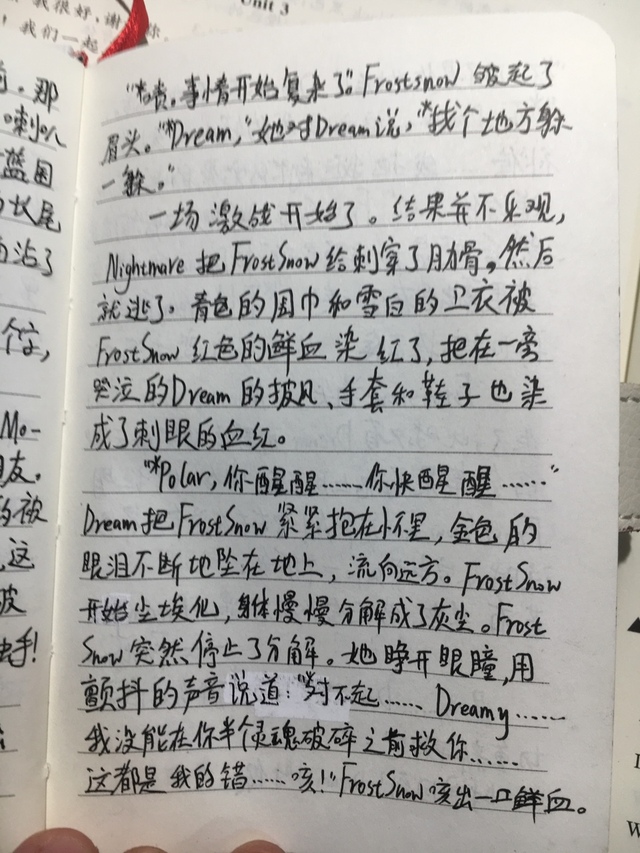 Unit 3
我很好，谢
，我们一起
那
喇叭
蓝围
长尾
沾了
个位，
Mo-
朋友。
的被
，这
披
快手！
“*啧。事情开始复杂了。”FrostSnow 皱起了
眉头。“*Dream，”她对Dream说，“*找个地方躲
一躲。”
一场激战开始了。结果并不乐观，
Nightmare 把FrostSnow给刺穿了肋骨，然后
就逃了。青色的围巾和雪白的卫衣被
FrostSnow 红色的鲜血染红了，把在一旁
哭泣的Dream的披风、手套和鞋子也染
成了刺眼的血红。
“*Polar，你醒醒……你快醒醒……”
Dream把FrostSnow紧紧抱在怀里，金色的
眼泪不断地坠在地上，流向远方。FrostSnow
开始尘埃化，身体慢慢分解成了灰尘。Frost
Snow突然停止了分解。她睁开眼瞳，用
颤抖的声音说道：“*对不起……Dreamy……
我没能在你半个灵魂破碎之前救你……
这都是我的错……咳！”FrostSnow咳出一口鲜血。
W